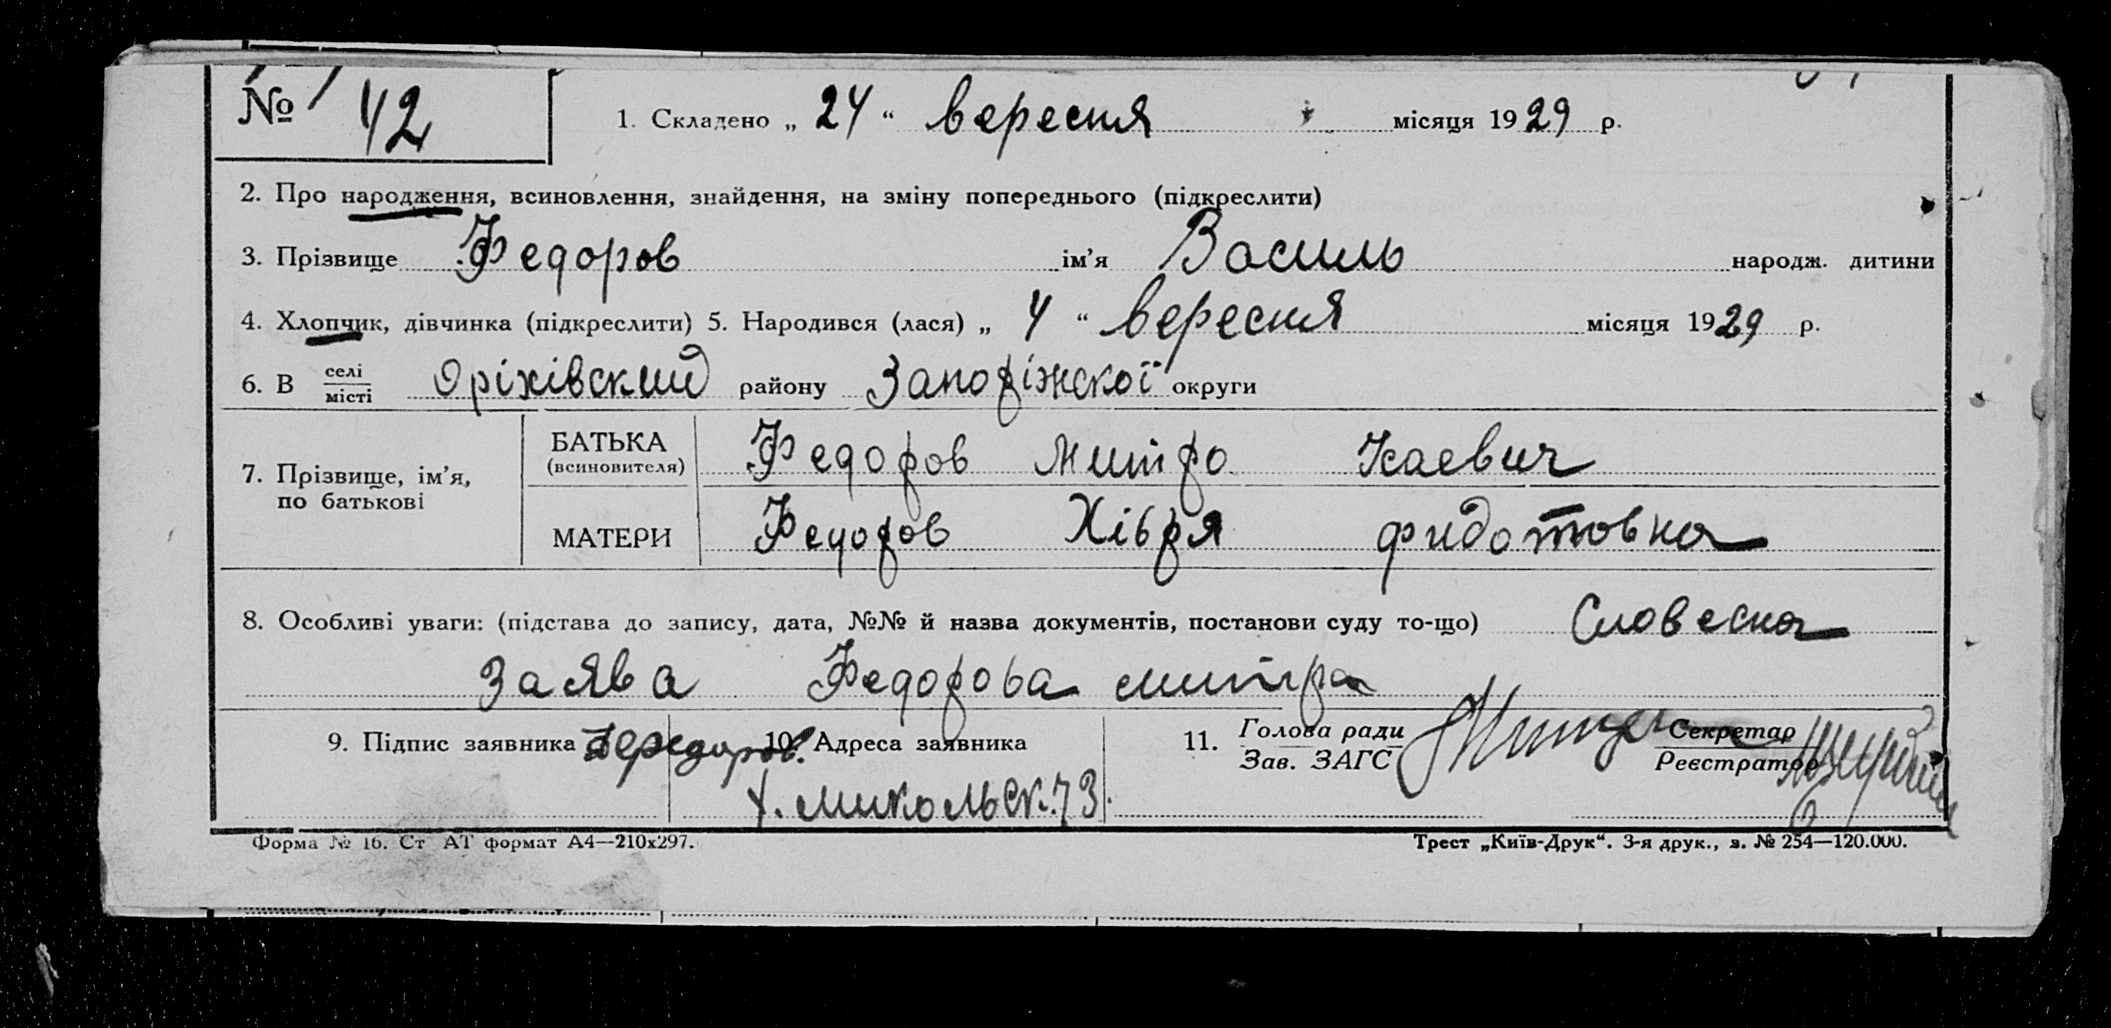 № 42
1. Складено „ 24 “ вересня місяця 1929 р.
2. Про народження, всиновлення, знайдення, на зміну попереднього (підкреслити)
3. Прізвище Федоров ім’я Василь народж. дитини
4. Хлопчик, дівчинка (підкреслити) 5. Народився (лася) „ 4 “ вересня місяця 1929 р.
6. В селі місті Оріхівский району Запоріжскої округи
7. Прізвище, ім’я, по батькові
БАТЬКА (всиновителя) Федоров Митро Ісаевич
МАТЕРИ Федоров Хівря Фидотовна
8. Особливі уваги: (підстава до запису, дата, №№ й назва документів, постанови суду то-що) Словесна
заява Федорова Митра
9. Підпис заявника 10. Адреса заявника
х. Микольск. 73.
11. Голова ради Зав. ЗАГС Секретар Реєстратор
Форма № 16. Ст АТ формат А4—210х297.
Трест „Київ-Друк“. 3-я друк., з. № 254—120.000.